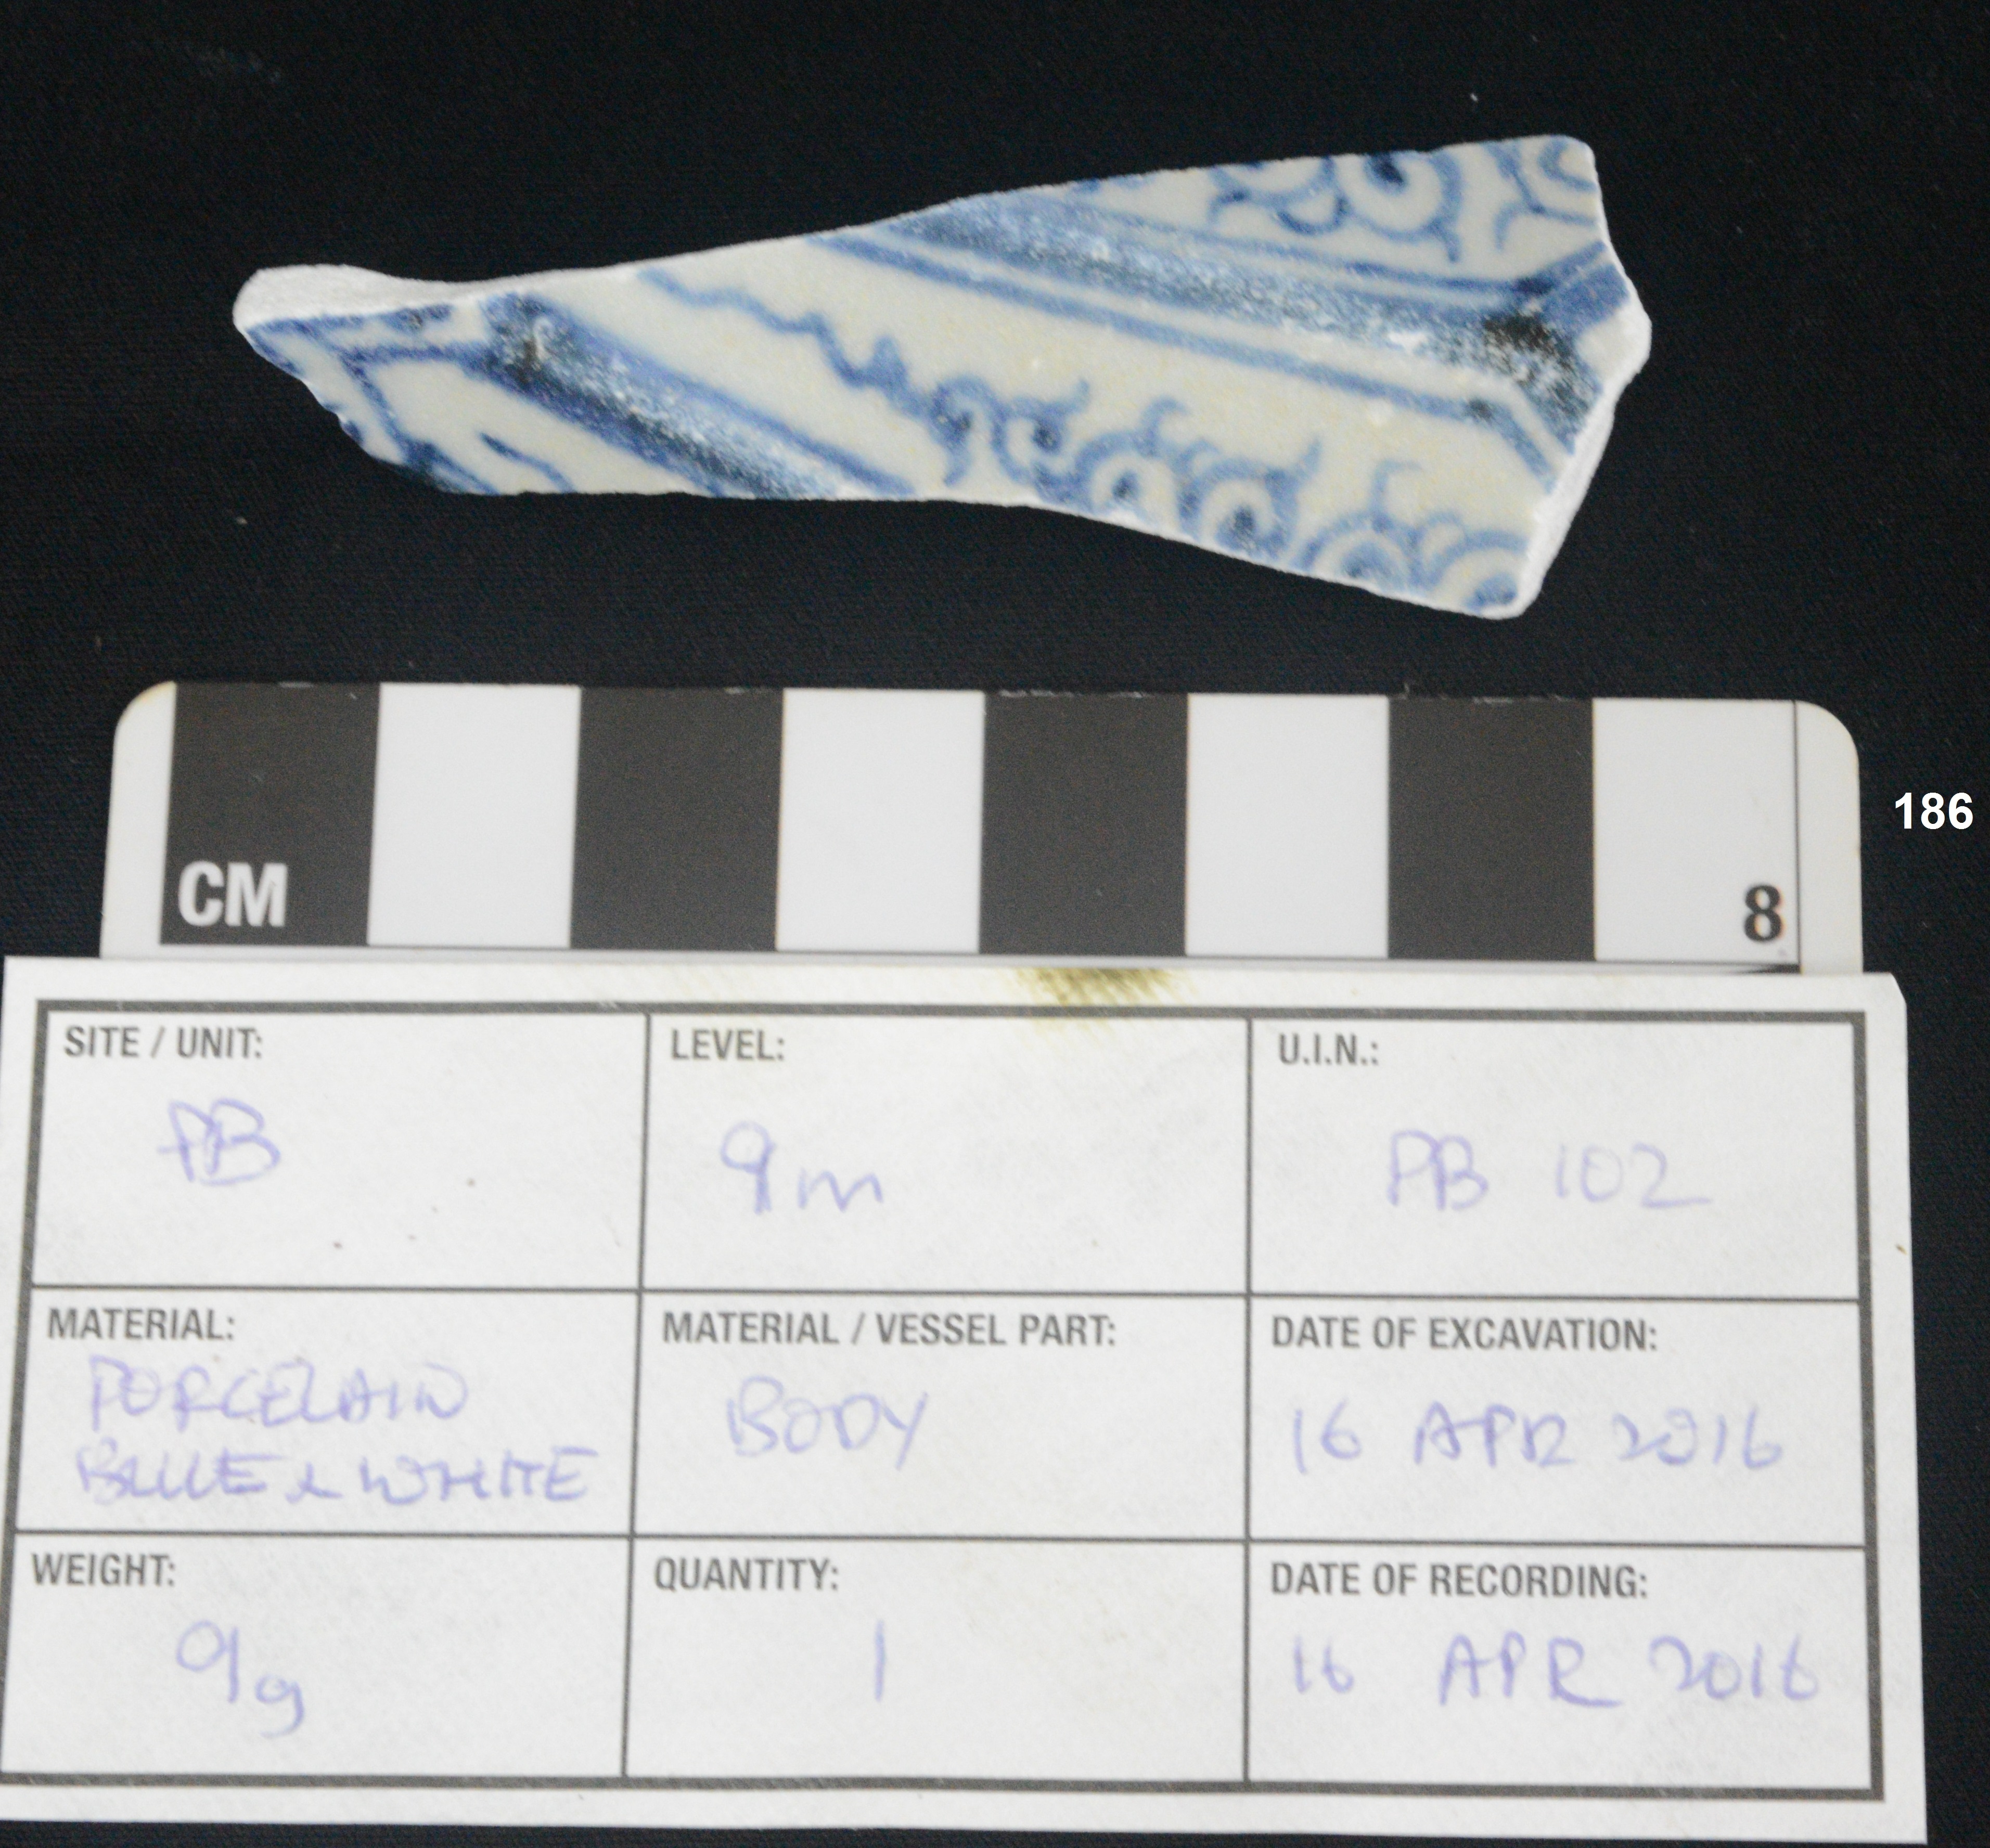 CM
8
186
SITE / UNIT:
PB
LEVEL:
9m
U.I.N.:
PB 102
MATERIAL:
PORCELAIN
BLUE & WHITE
MATERIAL / VESSEL PART:
BODY
DATE OF EXCAVATION:
16 APR 2016
WEIGHT:
9g
QUANTITY:
1
DATE OF RECORDING:
16 APR 2016